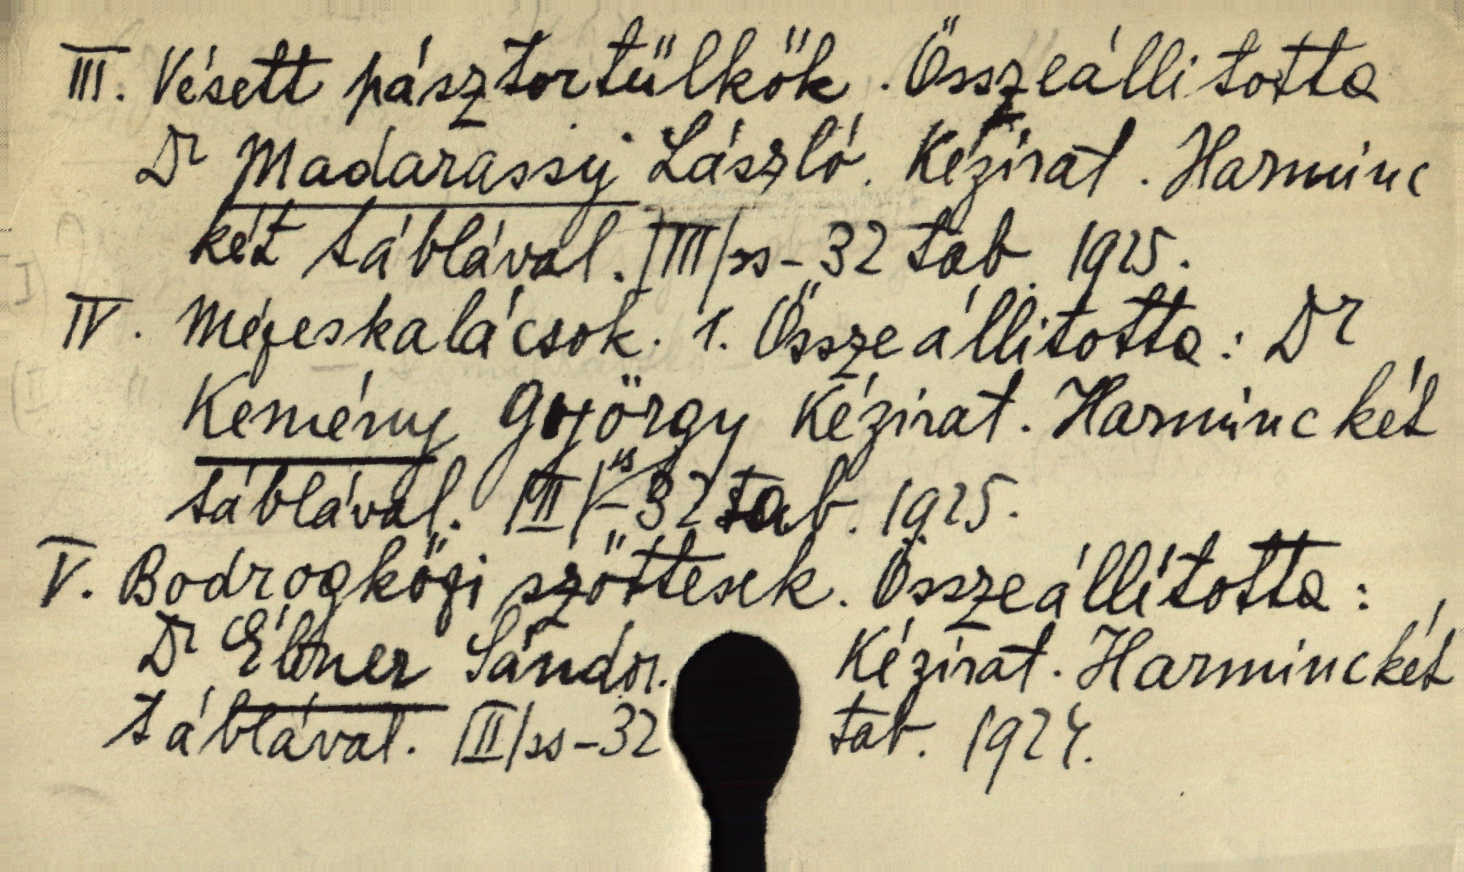 III. Vésett pásztortülkök. Összeállitotta
Dr Madarassy László. Kézirat. Harminc
két táblával. /III/ss-32 tab. 1925.
IV. Mézeskalácsok. 1. Összeállitotta: Dr
Kemény György Kézirat. Harminckét
táblával. /II/ss-32 tab. 1925.
V. Bodrogközi szőttesek. Összeállította:
Dr Ébner Sándor. Kézirat. Harminckét
táblával. /II/ss-32 tab. 1924.